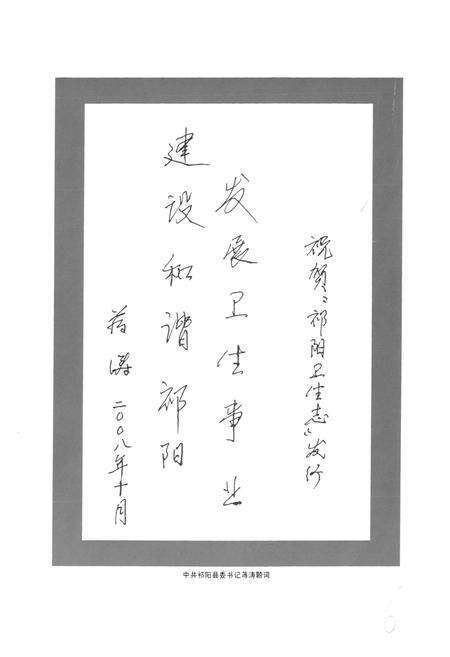 祝贺《祁阳卫生志》发行
发展卫生事业
建设和谐祁阳
蒋涛 二〇〇八年十月
中共祁阳县委书记蒋涛题词